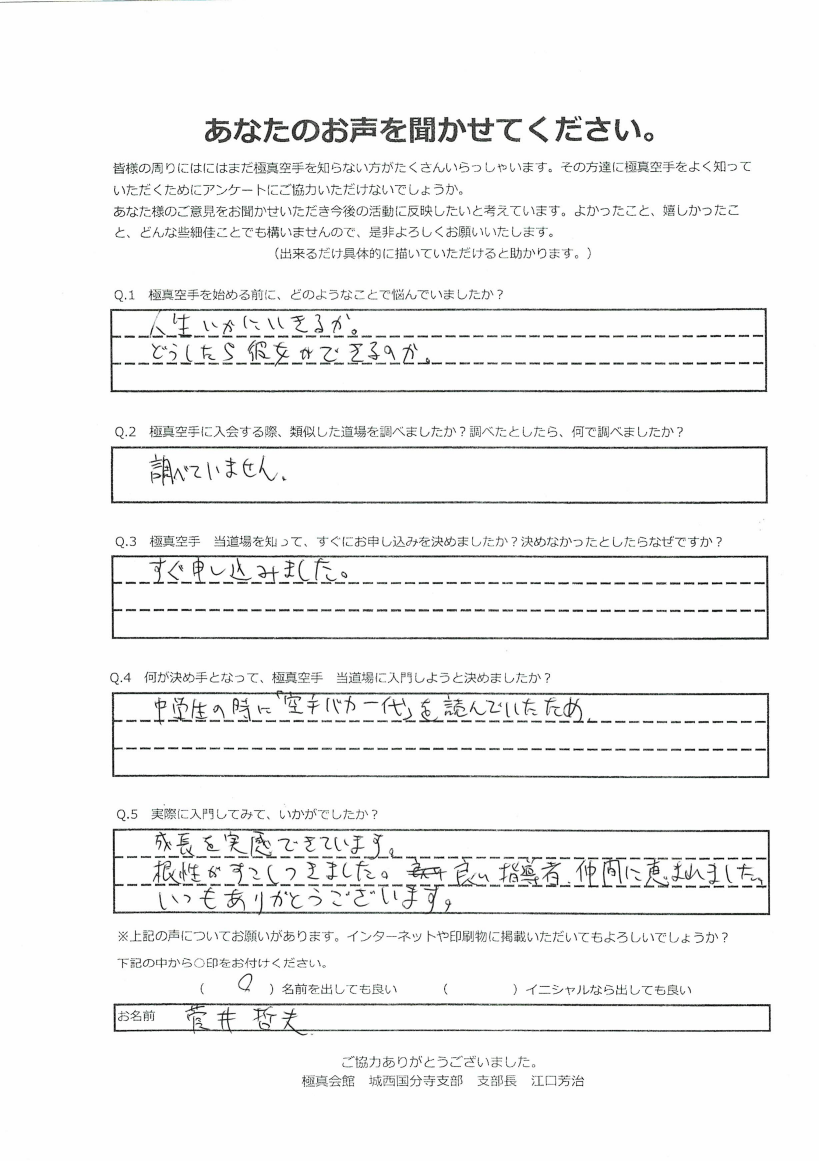 あなたのお声を聞かせてください。
皆様の周りにはにはまだ極真空手を知らない方がたくさんいらっしゃいます。その方達に極真空手をよく知って
いただくためにアンケートにご協力いただけないでしょうか。
あなた様のご意見をお聞かせいただき今後の活動に反映したいと考えています。よかったこと、嬉しかったこ
と、どんな些細佳ことでも構いませんので、是非よろしくお願いいたします。
（出来るだけ具体的に描いていただけると助かります。）
Q.1 極真空手を始める前に、どのようなことで悩んでいましたか？
人生いかにいきるか。
どうしたら彼女ができるのか。
Q.2 極真空手に入会する際、類似した道場を調べましたか？調べたとしたら、何で調べましたか？
調べていません。
Q.3 極真空手 当道場を知って、すぐにお申し込みを決めましたか？決めなかったとしたらなぜですか？
すぐ申し込みました。
Q.4 何が決め手となって、極真空手 当道場に入門しようと決めましたか？
中学生の時に「空手バカ一代」を読んでいたため。
Q.5 実際に入門してみて、いかがでしたか？
成長を実感できています。
根性がすこしつきました。良い指導者、仲間に恵まれました。
いつもありがとうございます。
※上記の声についてお願いがあります。インターネットや印刷物に掲載いただいてもよろしいでしょうか？
下記の中から○印をお付けください。
（ ○ ）名前を出しても良い （ ）イニシャルなら出しても良い
お名前 菅井 哲夫
ご協力ありがとうございました。
極真会館 城西国分寺支部 支部長 江口芳治